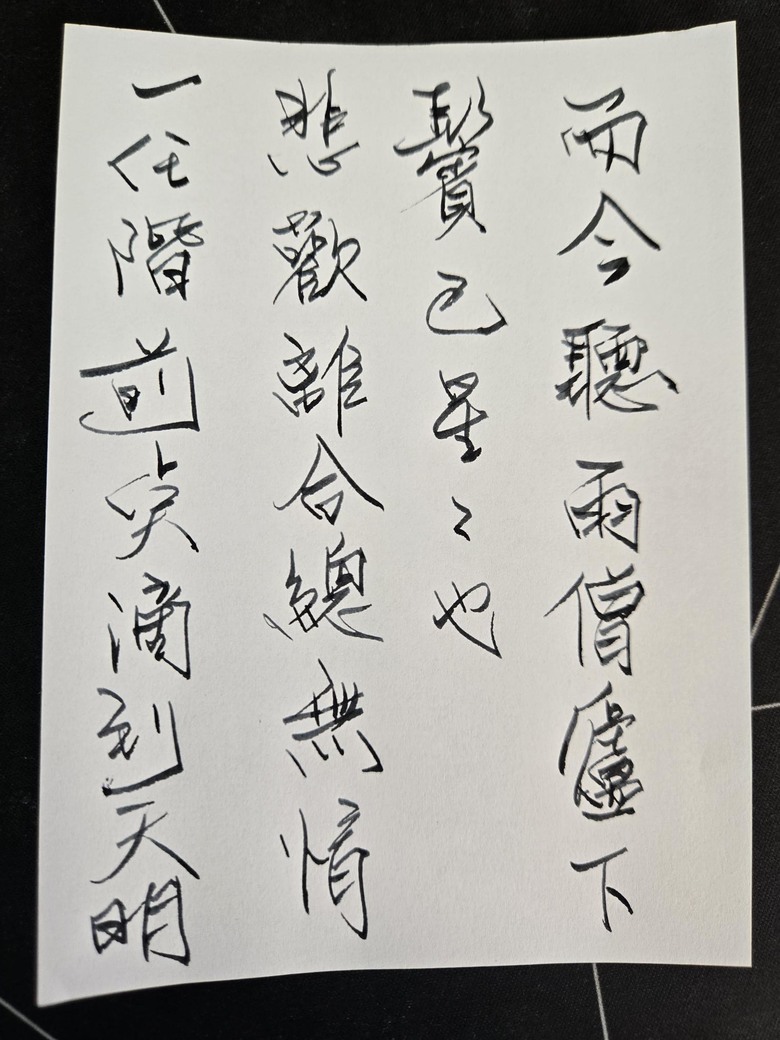 而今聽雨僧廬下
鬢已星々也
悲歡離合總無情
一任階前点滴到天明